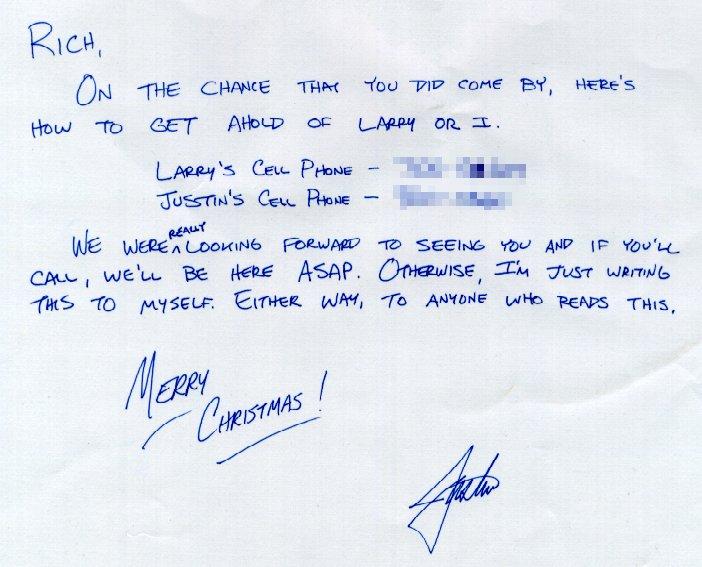 RICH,
ON THE CHANCE THAT YOU DID COME BY, HERE'S
HOW TO GET AHOLD OF LARRY OR I.
LARRY'S CELL PHONE -
JUSTIN'S CELL PHONE -
REALLY
WE WERE ^ LOOKING FORWARD TO SEEING YOU AND IF YOU'LL
CALL, WE'LL BE HERE ASAP. OTHERWISE, I'M JUST WRITING
THIS TO MYSELF. EITHER WAY, TO ANYONE WHO READS THIS,
MERRY
CHRISTMAS!
Justin